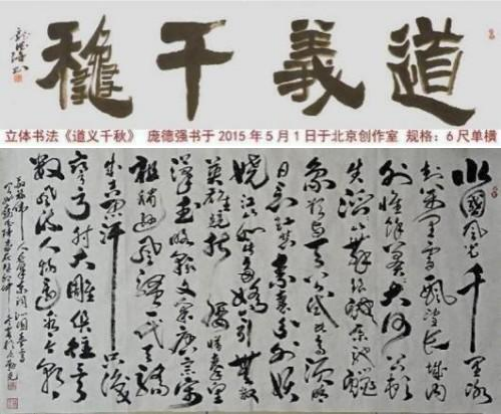 道義千龝
立体书法《道义千秋》 庞德强书于 2015 年 5 月 1 日于北京创作室 规格：6 尺单横
北国风光千里冰
封万里雪飘望长城内
外惟馀莽莽大河上下顿
失滔滔山舞银蛇原驰蜡
象欲与天公试比高须晴
日看红装素裹分外妖
娆江山如此多娇引无数
英雄竞折腰惜秦皇
汉武略输文采唐宗宋
祖稍逊风骚一代天骄
成吉思汗只识
弯弓射大雕俱往矣
数风流人物还看今朝